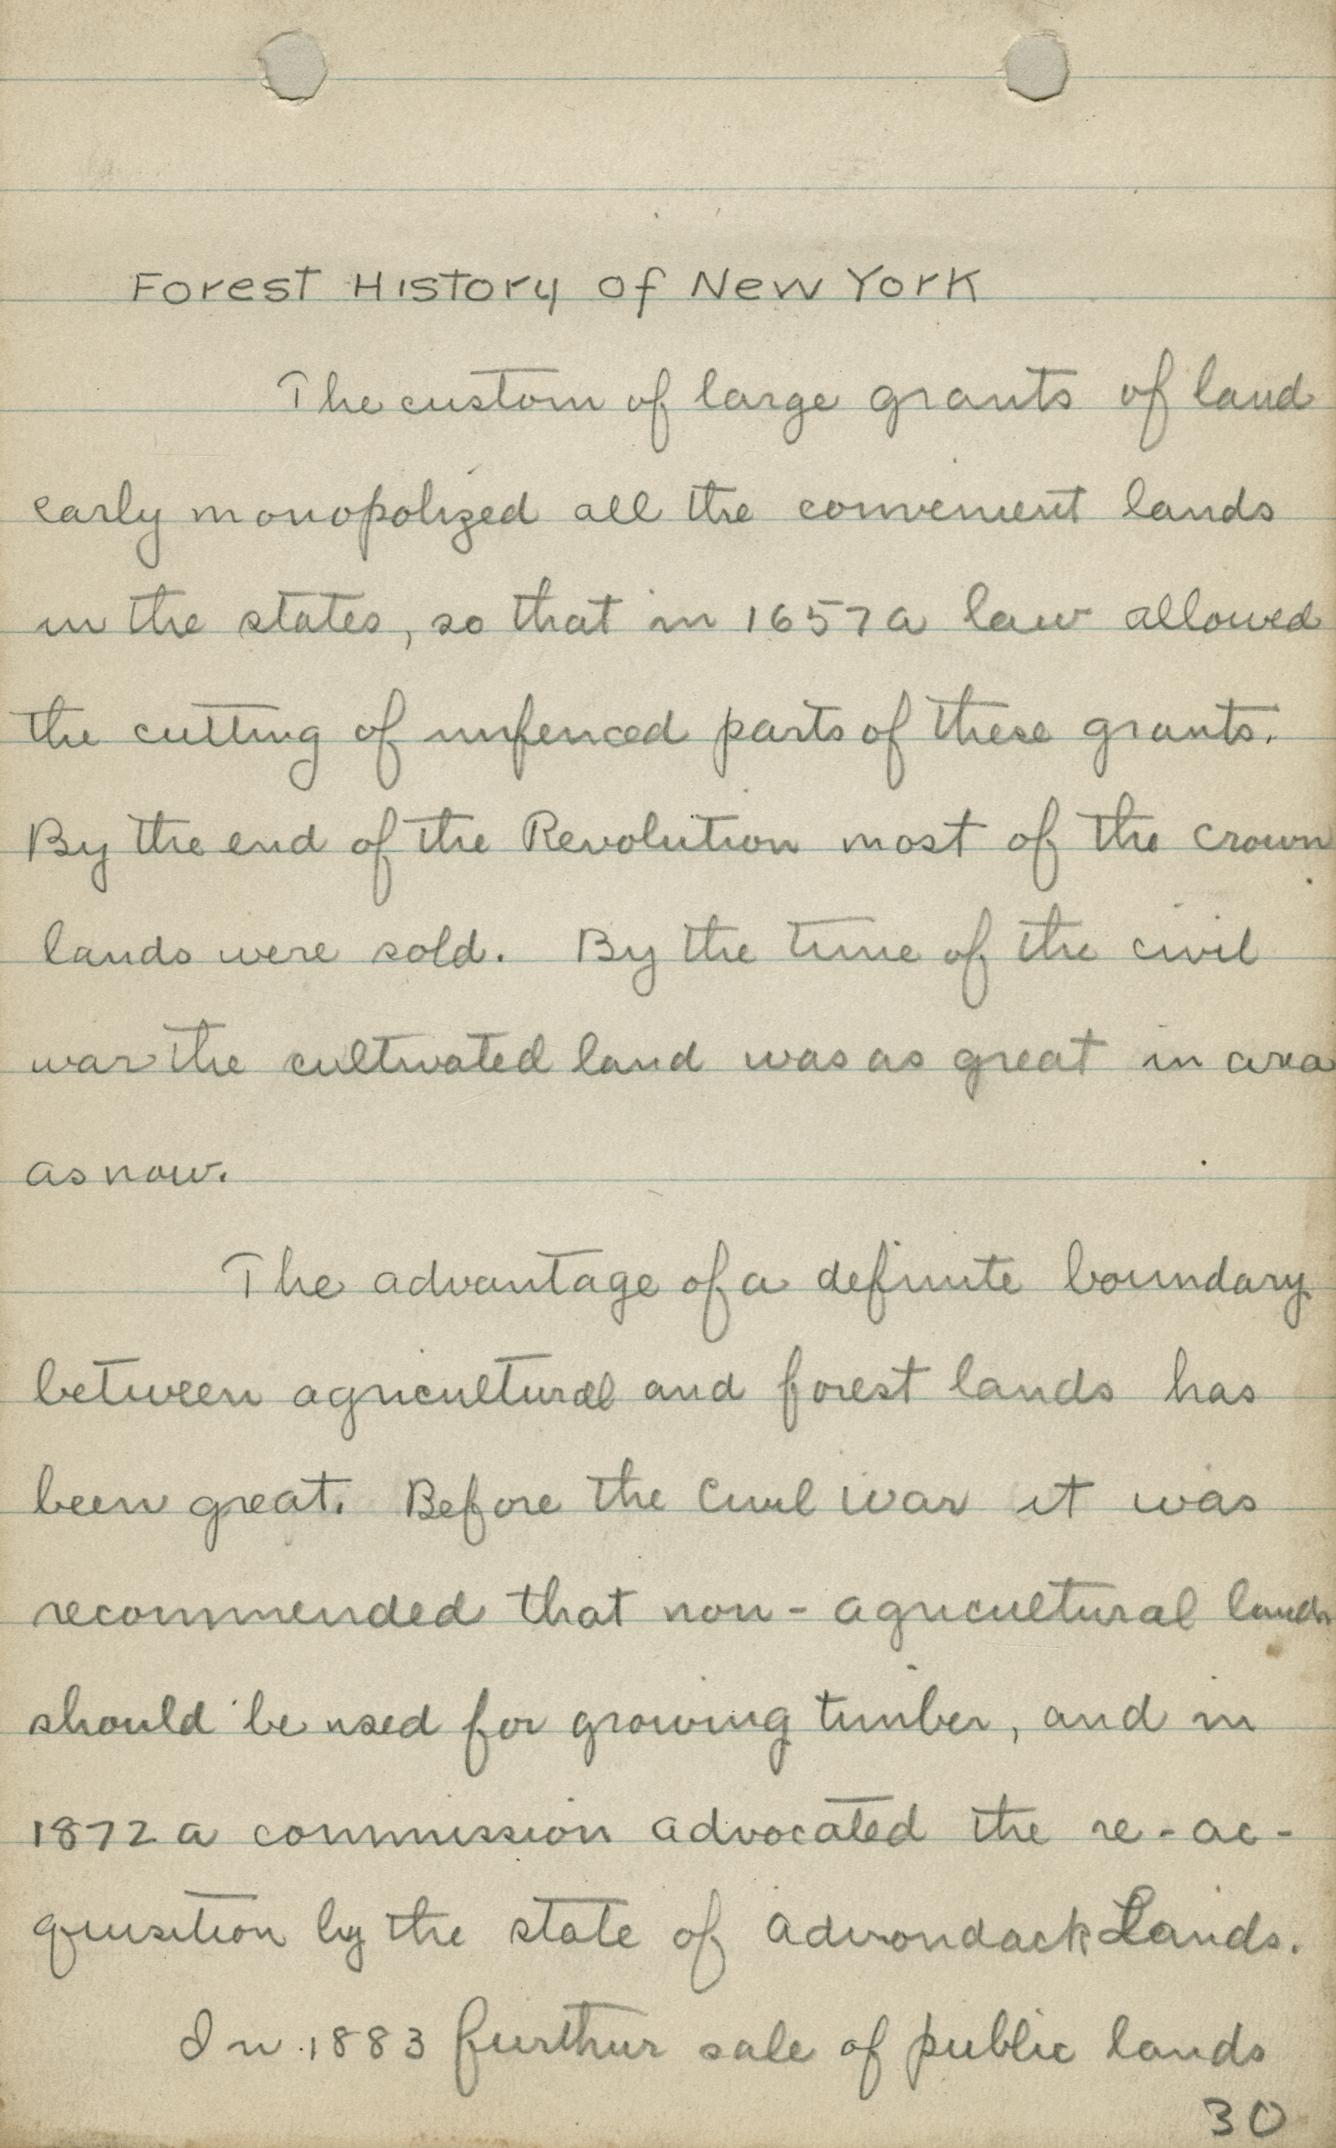 Forest History of New York
The custom of large grants of land
early monopolized all the convenient lands
in the states, so that in 1657 a law allowed
the cutting of unfenced parts of these grants.
By the end of the Revolution most of the crown
lands were sold. By the time of the civil
war the cultivated land was as great in area
as now.
The advantage of a definite boundary
between agricultural and forest lands has
been great. Before the Civil War it was
recommended that non-agricultural lands
should be used for growing timber, and in
1872 a commission advocated the re-ac-
quisition by the state of Adirondack Lands.
In 1883 furthur sale of public lands
30